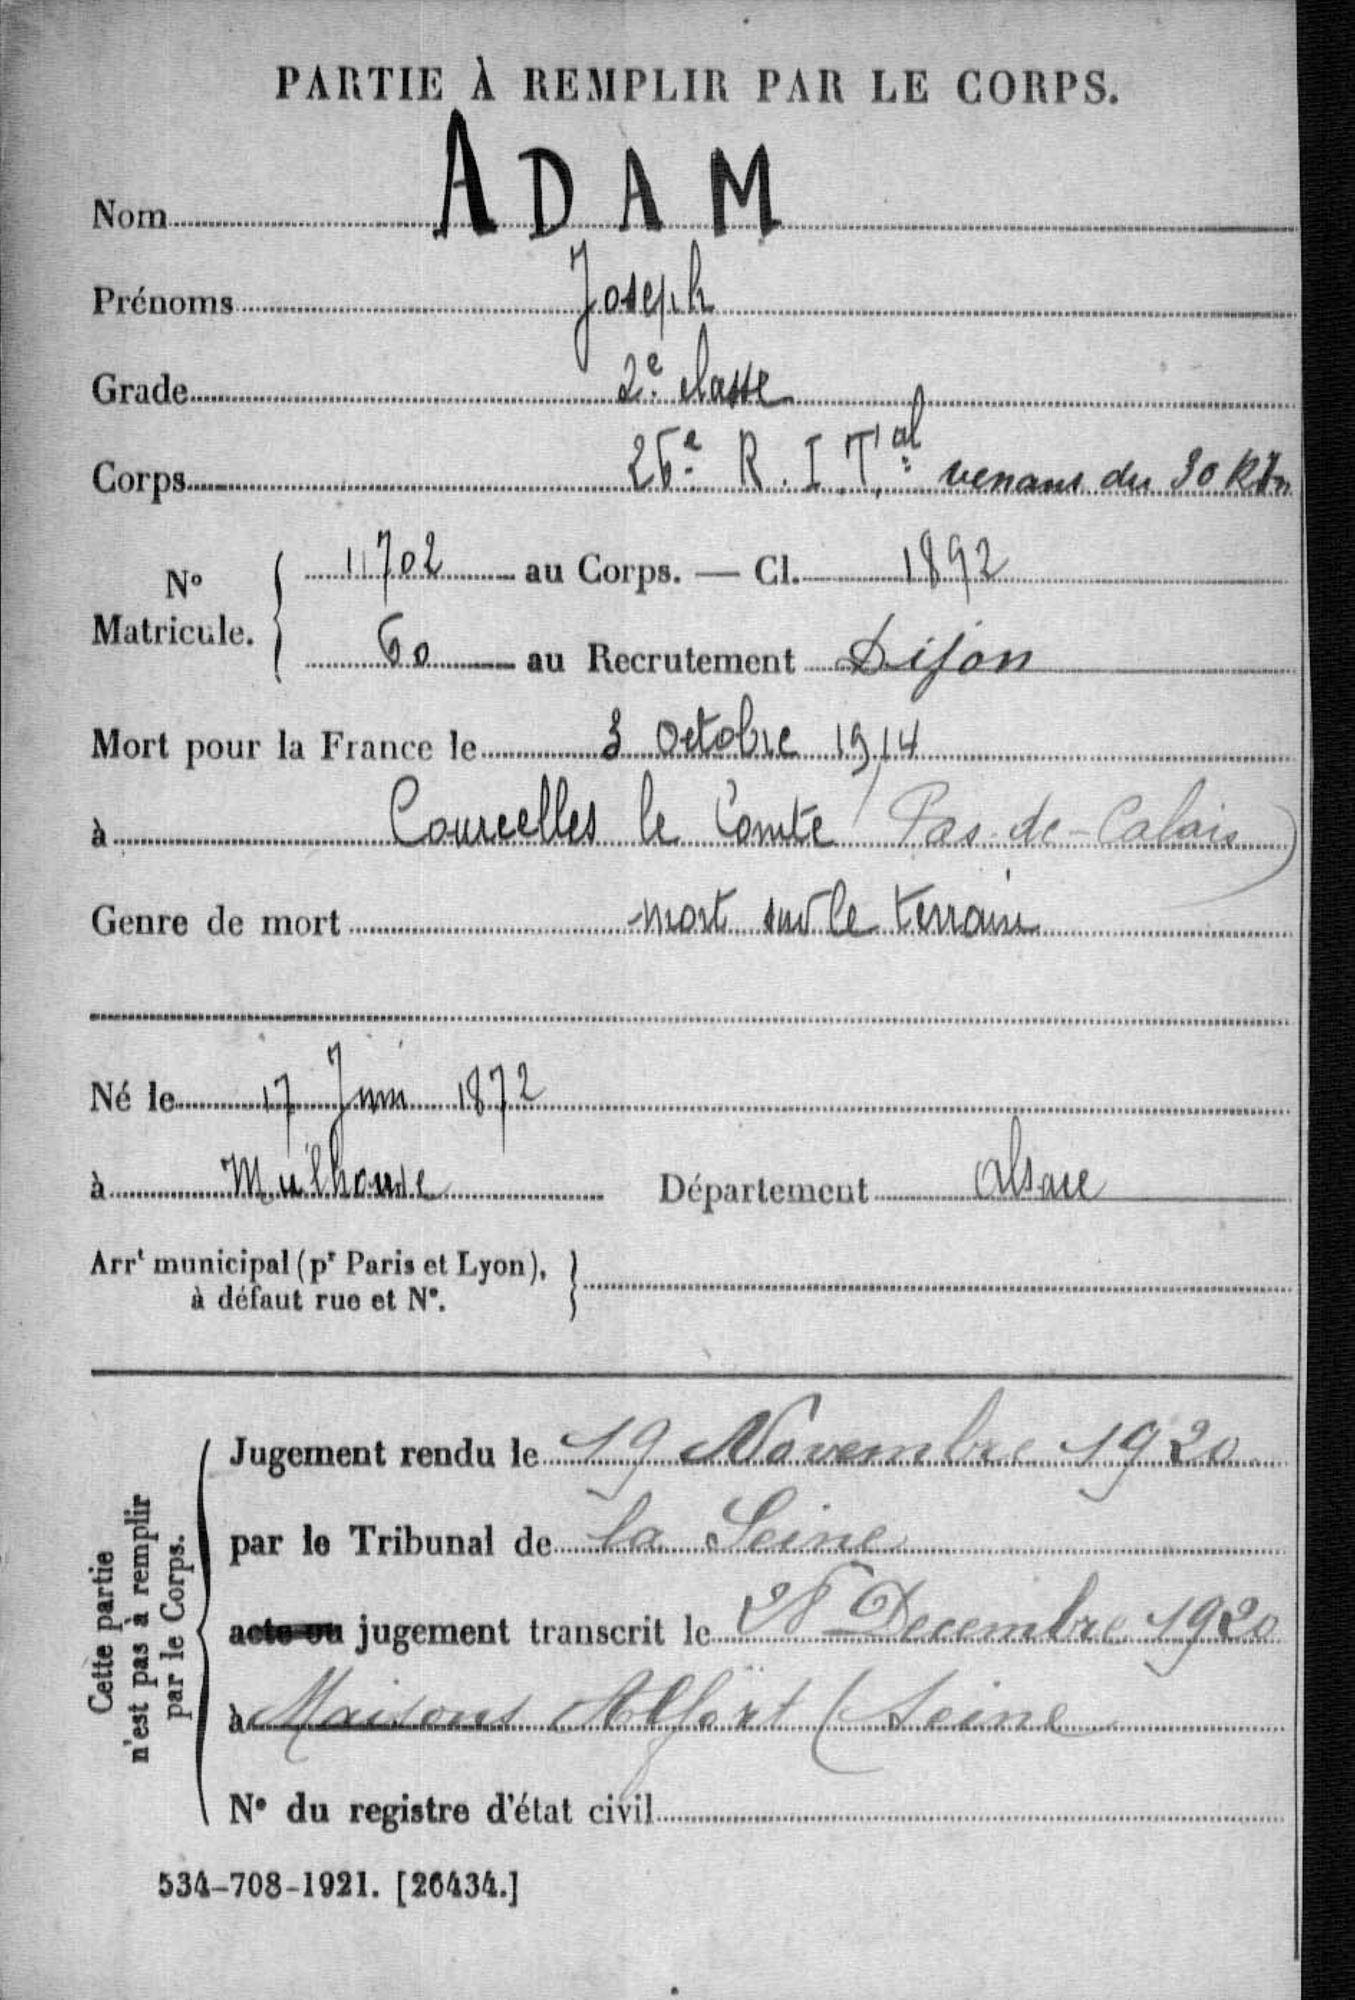 PARTIE À REMPLIR PAR LE CORPS.
Nom ADAM
Prénoms Joseph
Grade 2e classe
Corps 26e R. I. Tal venant du 30 RIn
N° Matricule. { 11702 au Corps. — Cl. 1892
60 au Recrutement Dijon
Mort pour la France le 3 Octobre 1914
à Courcelles le Comte (Pas-de-Calais)
Genre de mort mort sur le terrain
Né le 17 Juin 1872
à Mulhouse Département Alsace
Arrt municipal (pr Paris et Lyon),
à défaut rue et N°.
Cette partie
n'est pas à remplir
par le Corps.
Jugement rendu le 19 Novembre 1920
par le Tribunal de la Seine
acte ou jugement transcrit le 28 Decembre 1920
à Maisons Alfort (Seine
N° du registre d'état civil
534-708-1921. [26434.]